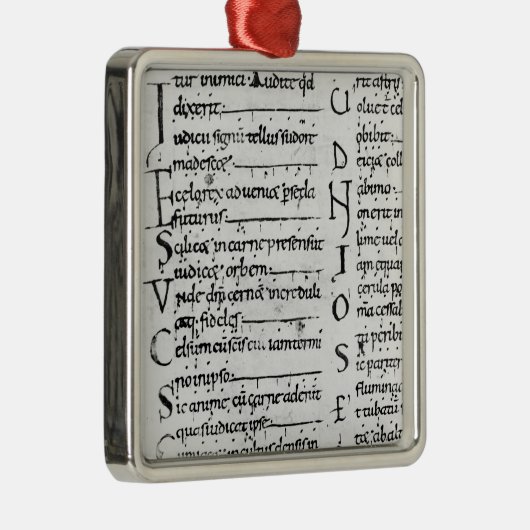 tur inimici Audite qd
dixerit
Iudicii signũ tellus sudore
madescæ
E celo rex adueniæ p secla
futurus
Scilicæ in carne presens ut
iudicæ orbem
Vnde dm cernæ increduli
atq; fideles
Celsum cũ scis eui iam termi
no in ipso
Sic anime cũ carne aderunt
quas iudicet ipse
Cum iacet incultus densis in
rit astris
Uoluet cel
obibit
Deiciæ coll
ab imo
Non erit in
lime uel
Iam equa
cerula po
Omã cessab
tu peribi
Sic pariter
flumina
Et tubatũ
tæ ab al